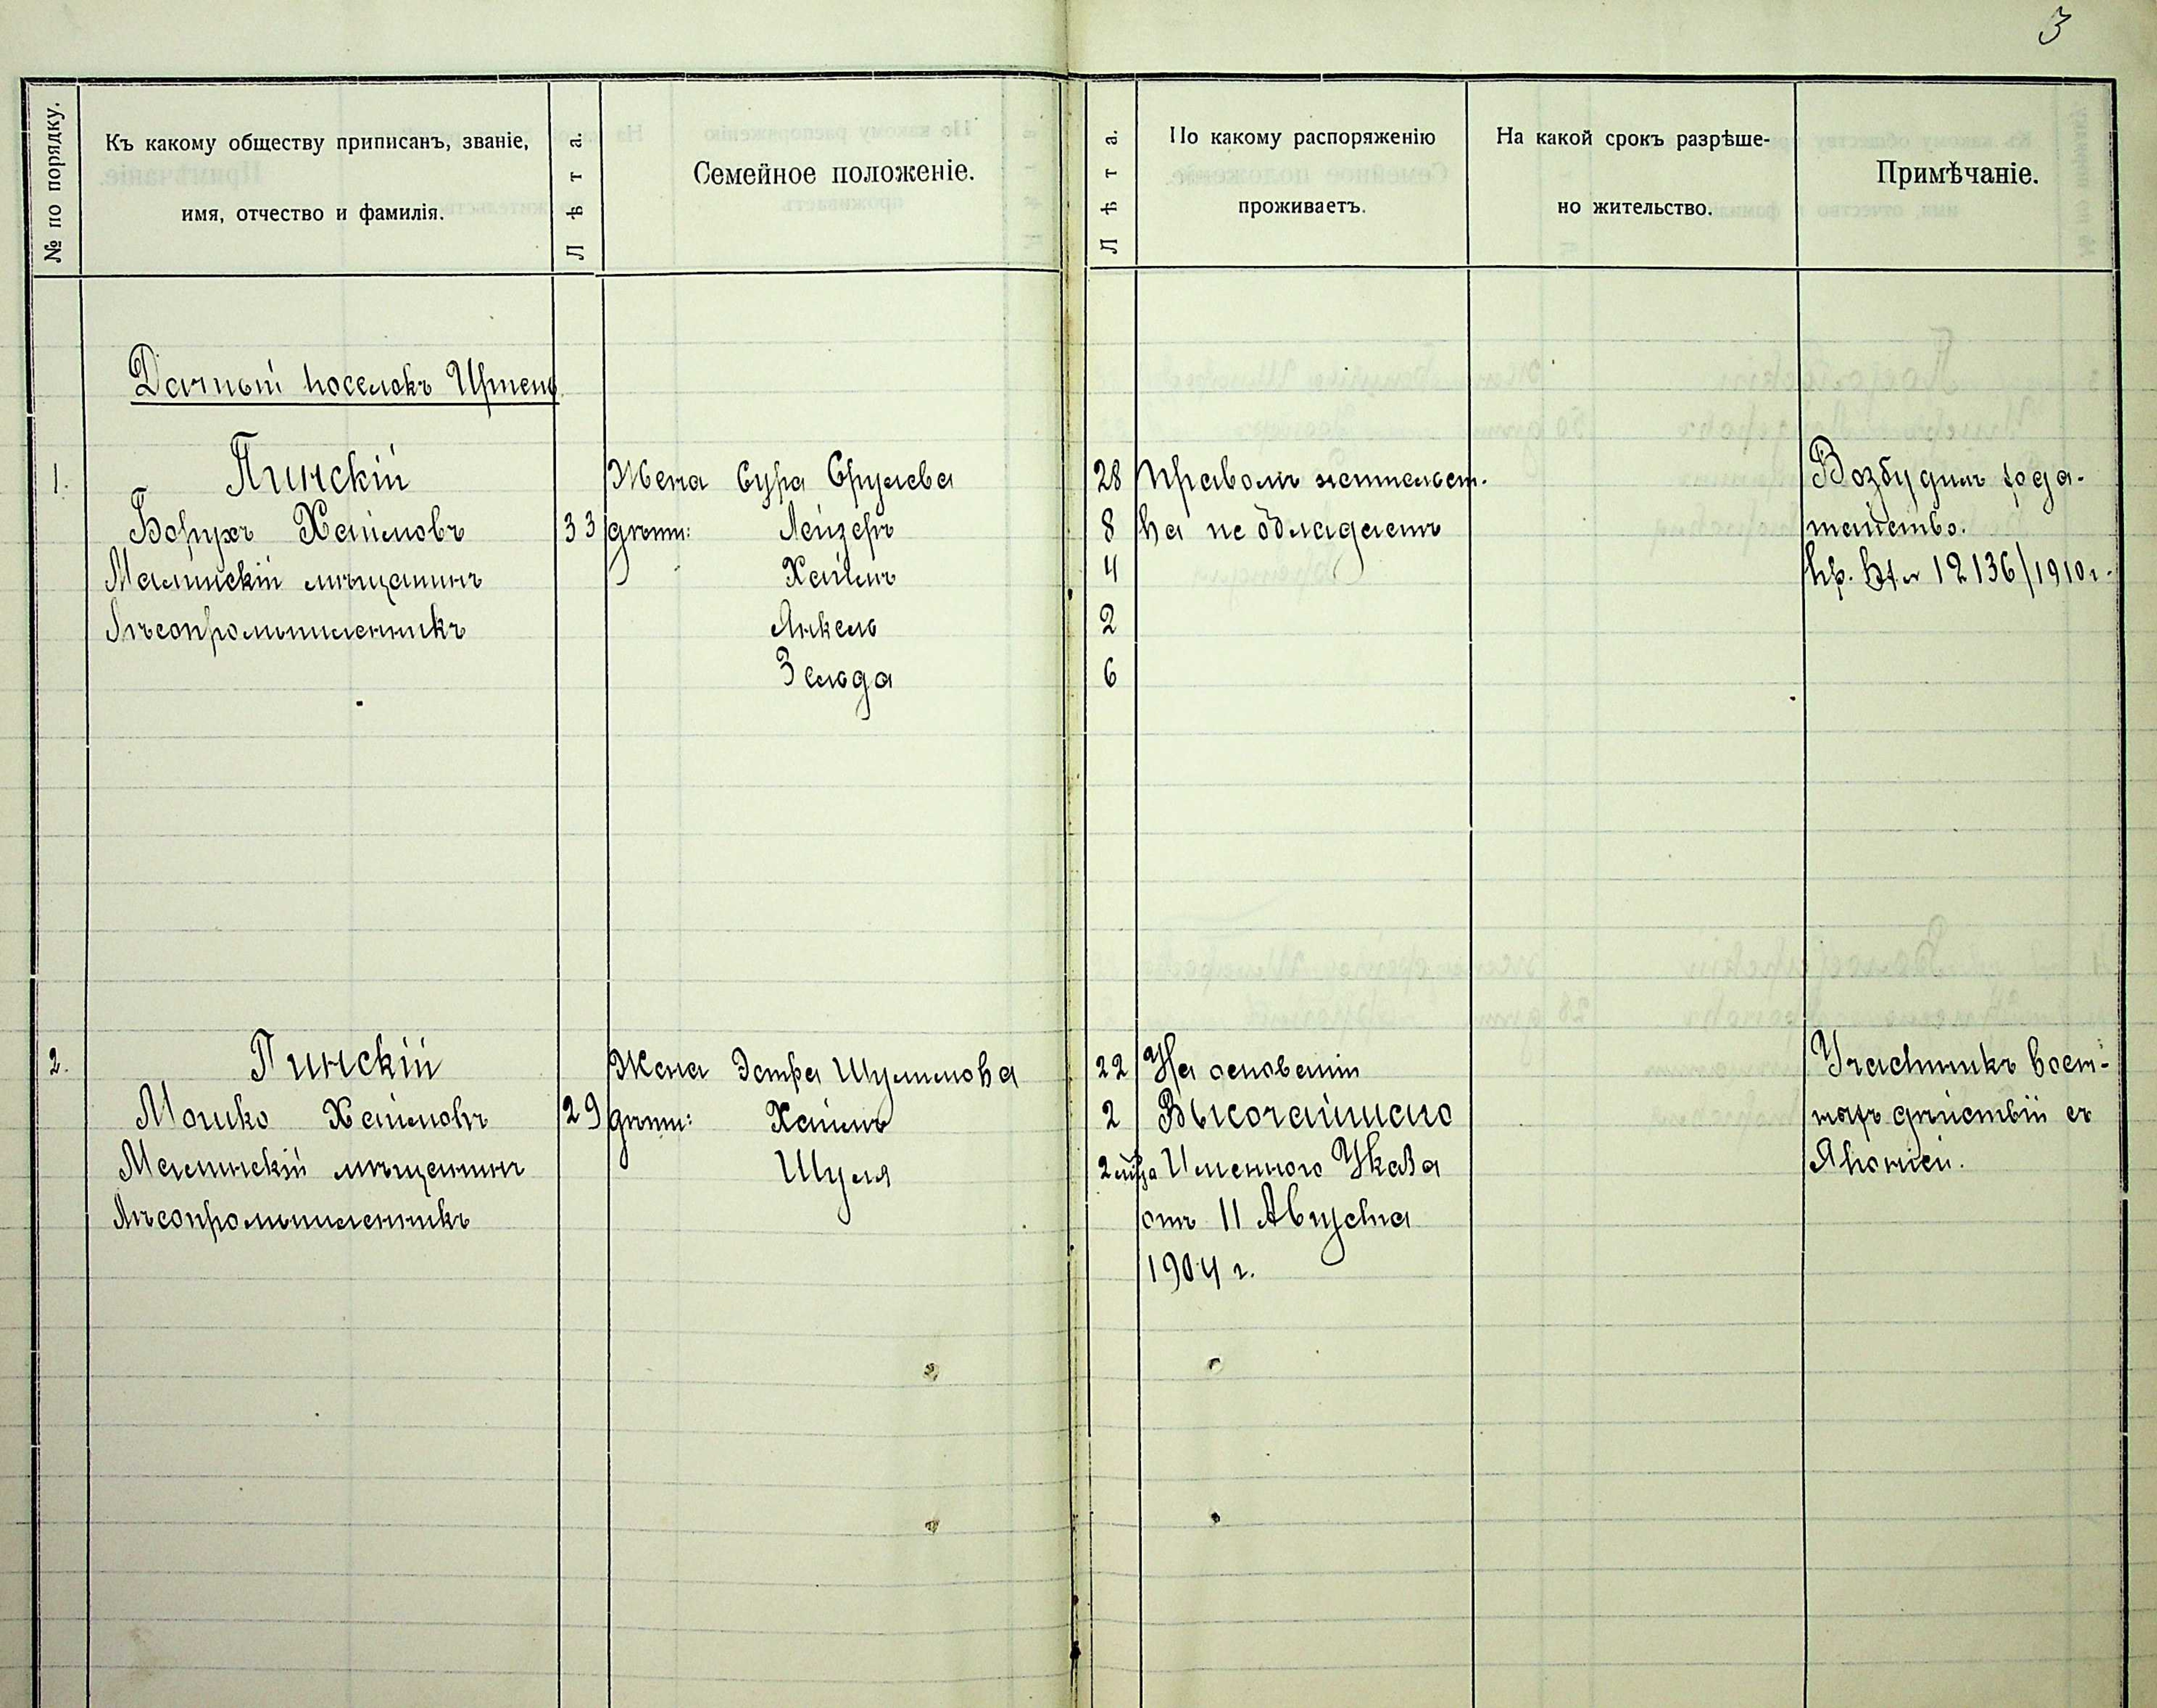 3
№ по порядку.
Къ какому обществу приписанъ, званіе,
имя, отчество и фамилія.
Лѣта.
Семейное положеніе.
Лѣта.
По какому распоряженію
проживаетъ.
На какой срокъ разрѣше-
но жительство.
Примѣчаніе.
Дачный поселокъ Ирпень
1. Пинскій Жена Сура Срулева 28 Правомъ жительст- Возбудилъ хода-
Борухъ Хаимовъ 33 дѣти: Лейзеръ 8 ва не обладаетъ тайство.
Малинскій мѣщанинъ Хаимъ 4 12136/1910 г.
Лѣсопромышленникъ Янкель 2
Зельда 6
2. Пинскій Жена Эстра Шулимова 22 На основаніи Участникъ воен-
Мошко Хаимовъ 29 дѣти: Хаимъ 2 Высочайшаго ныхъ дѣйствій съ
Малинскій мѣщанинъ Шуля 2 Именного Указа Японіей.
Лѣсопромышленникъ отъ 11 Августа
1904 г.